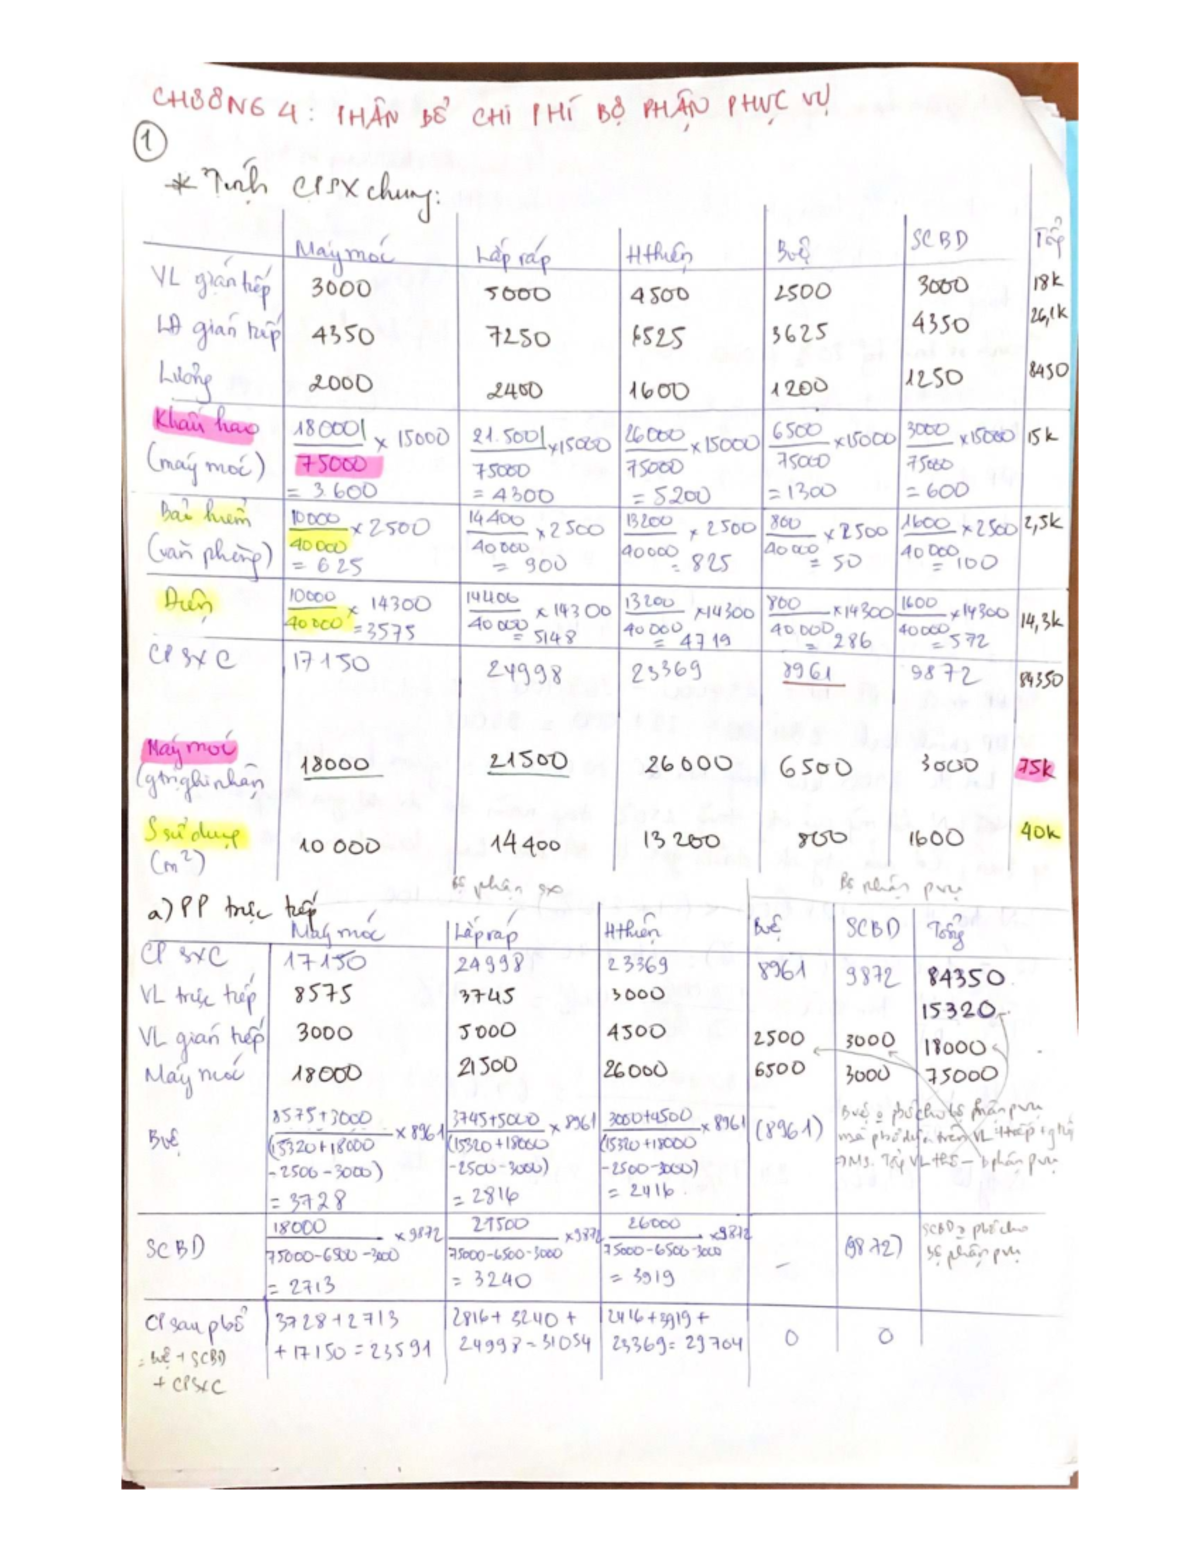 CHƯƠNG 4: PHÂN BỔ CHI PHÍ BỘ PHẬN PHỤC VỤ
1
* Tính CPSX chung:
Máy móc Lắp ráp H thiện B vệ SCBD Tổng
VL gián tiếp 3000 5000 4500 2500 3000 18k
LĐ gián tiếp 4350 7250 6525 3625 4350 26,1k
Lương 2000 2400 1600 1200 1250 8450
Khấu hao (máy móc) 18000/75000 x 15000 = 3.600 21.500/75000 x 15000 = 4300 26000/75000 x 15000 = 5200 6500/75000 x 15000 = 1300 3000/75000 x 15000 = 600 15k
Bảo hiểm (văn phòng) 10000/40000 x 2500 = 625 14400/40000 x 2500 = 900 13200/40000 x 2500 = 825 800/40000 x 2500 = 50 1600/40000 x 2500 = 100 2,5k
Điện 10000/40000 x 14300 = 3575 14400/40000 x 14300 = 5148 13200/40000 x 14300 = 4719 800/40000 x 14300 = 286 1600/40000 x 14300 = 572 14,3k
CP SXC 17150 24998 23369 8961 9872 84350
Máy móc (gtrị ghi nhận) 18000 21500 26000 6500 3000 75k
S sử dụng (m²) 10 000 14400 13 200 800 1600 40k
Bộ phận sx Bộ phận pvụ
a) PP trực tiếp
Máy móc Lắp ráp H thiện B vệ SCBD Tổng
CP SXC 17150 24998 23369 8961 9872 84350
VL trực tiếp 8575 3745 3000 15320
VL gián tiếp 3000 5000 4500 2500 3000 18000
Máy móc 18000 21500 26000 6500 3000 75000
B vệ 8575+3000/(15320+18000-2500-3000) x 8961 = 3728 3745+5000/(15320+18000-2500-3000) x 8961 = 2816 3000+4500/(15320+18000-2500-3000) x 8961 = 2416 (8961)
SCBD 18000/75000-6500-3000 x 9872 = 2713 21500/75000-6500-3000 x 9872 = 3240 26000/75000-6500-3000 x 9872 = 3919 - (9872)
CP sau pbổ = bvệ + SCBD + CPSXC 3728+2713+17150=23591 2816+3240+24998=31054 2416+3919+23369=29704 0 0